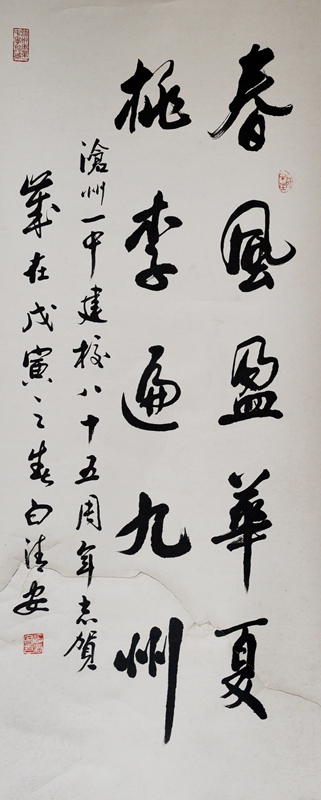 春風盈華夏
桃李遍九州
滄州一中建校八十五周年志賀
歲在戊寅之春白清安